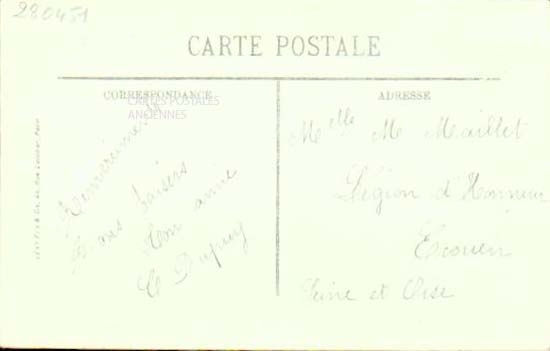 280451
CARTE POSTALE
CORRESPONDANCE
CARTES POSTALES
ANCIENNES
ADRESSE
baisers
Mon amie
C Dupuy
Melle M Maillet
Légion d'Honneur
Ecouen
Seine et Oise